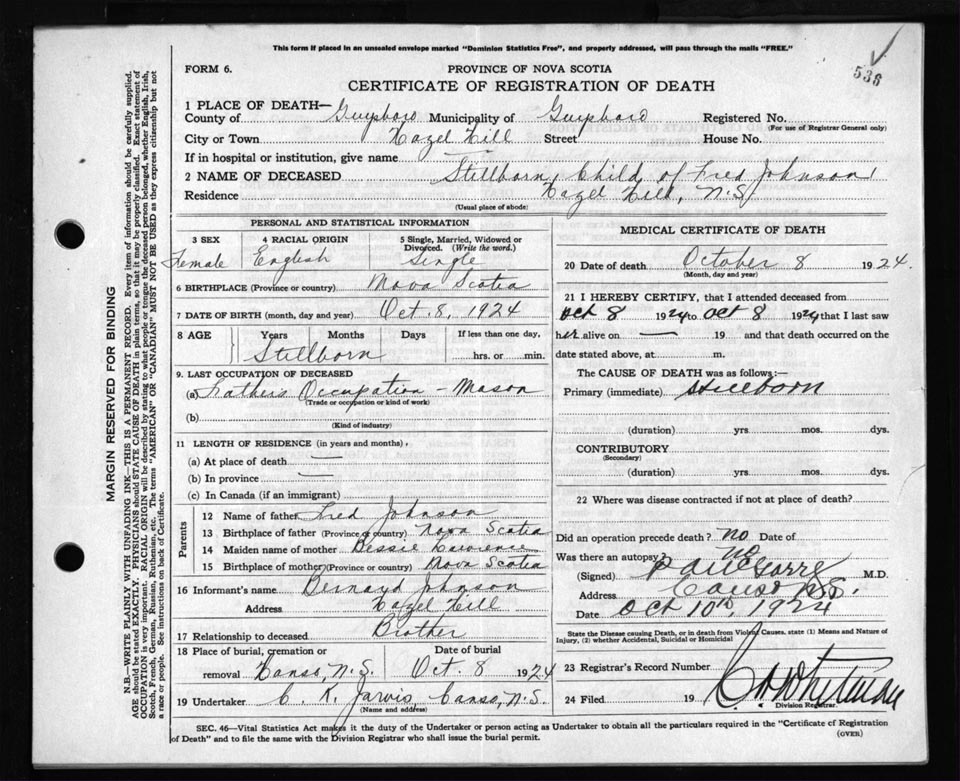 This form if placed in an unsealed envelope marked "Dominion Statistics Free", and properly addressed, will pass through the mails "FREE."
536
FORM 6.
PROVINCE OF NOVA SCOTIA
CERTIFICATE OF REGISTRATION OF DEATH
1 PLACE OF DEATH—
County of Guysboro Municipality of Guysboro Registered No.
(For use of Registrar General only)
City or Town Hazel Hill Street House No.
If in hospital or institution, give name —
2 NAME OF DECEASED Stillborn Child of Fred Johnson
Residence Hazel Hill, N.S.
(Usual place of abode)
PERSONAL AND STATISTICAL INFORMATION
3 SEX 4 RACIAL ORIGIN 5 Single, Married, Widowed or Divorced. (Write the word.)
Female English Single
6 BIRTHPLACE (Province or country) Nova Scotia
7 DATE OF BIRTH (month, day and year) Oct. 8, 1924
8 AGE Years Months Days If less than one day,
Stillborn hrs. or min.
9. LAST OCCUPATION OF DECEASED
(a) Father's Occupation - Mason
(Trade or occupation or kind of work)
(b)
(Kind of industry)
11 LENGTH OF RESIDENCE (in years and months).
(a) At place of death —
(b) In province —
(c) In Canada (if an immigrant)
Parents
12 Name of father Fred Johnson
13 Birthplace of father (Province or country) Nova Scotia
14 Maiden name of mother Bessie Lawrence
15 Birthplace of mother (Province or country) Nova Scotia
16 Informant's name Bernard Johnson
Address Hazel Hill
17 Relationship to deceased Brother
18 Place of burial, cremation or Date of burial
removal Canso, N.S. Oct 8 1924
19 Undertaker C. K. Jarvis, Canso, N.S.
(Name and address)
MEDICAL CERTIFICATE OF DEATH
20 Date of death October 8 1924.
(Month, day and year)
21 I HEREBY CERTIFY, that I attended deceased from
Oct 8 1924 to Oct 8 1924 that I last saw
her alive on — 19 and that death occurred on the
date stated above, at m.
The CAUSE OF DEATH was as follows:—
Primary (immediate) Stillborn
(duration) yrs. mos. dys.
CONTRIBUTORY
(Secondary)
(duration) yrs. mos. dys.
22 Where was disease contracted if not at place of death?
Did an operation precede death? No Date of
Was there an autopsy? No
(Signed) M.D.
Address Canso N.S.
Date Oct 10th, 1924
State the Disease causing Death, or in death from Violent Causes, state (1) Means and Nature of Injury, (2) whether Accidental, Suicidal or Homicidal
23 Registrar's Record Number
24 Filed 19 Whitman
Division Registrar.
SEC. 46—Vital Statistics Act makes it the duty of the Undertaker or person acting as Undertaker to obtain all the particulars required in the "Certificate of Registration
of Death" and to file the same with the Division Registrar who shall issue the burial permit.
(OVER)
MARGIN RESERVED FOR BINDING
N.B.—WRITE PLAINLY WITH UNFADING INK—THIS IS A PERMANENT RECORD. Every item of information should be carefully supplied.
AGE should be stated EXACTLY. PHYSICIANS should STATE CAUSE OF DEATH in plain terms, so that it may be properly classified. Exact statement of
OCCUPATION is very important. RACIAL ORIGIN will be described by stating to what people or tongue the deceased person belonged, whether English, Irish,
Scotch, French, German, Russian, Ruthenian, etc. The terms "AMERICAN" OR "CANADIAN" MUST NOT BE USED as they express citizenship but not
a race or people. See instructions on back of Certificate.